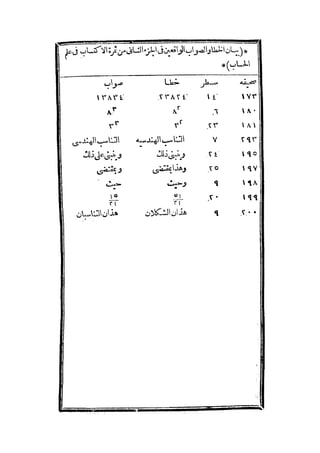 *(بيان الخطا والصواب الواقعين فى الجزء الثانى من ثمرة الاكتساب فى علم
الحساب)*
صحيفه سطر خطا صواب
١٧٣ ١٤ ٢٣٨٢٤ ١٣٨٣٤
١٨٠ ٦ ٨٢ ٨٣
١٨١ ٢٣ ٣٢ ٣٣
٢٩٣ ٧ التناسب الهندسيه التناسب الهندسى
١٩٥ ٢٤ وينبنى ذلك وينبنى على ذلك
١٩٧ ٢٥ وهذا يقتضى ويقتضى
١٩٨ ٩ وحيث حيث
١٩٩ ٢٠
٢٠٠ ٩ هذان الشكلان هذان التناسبان